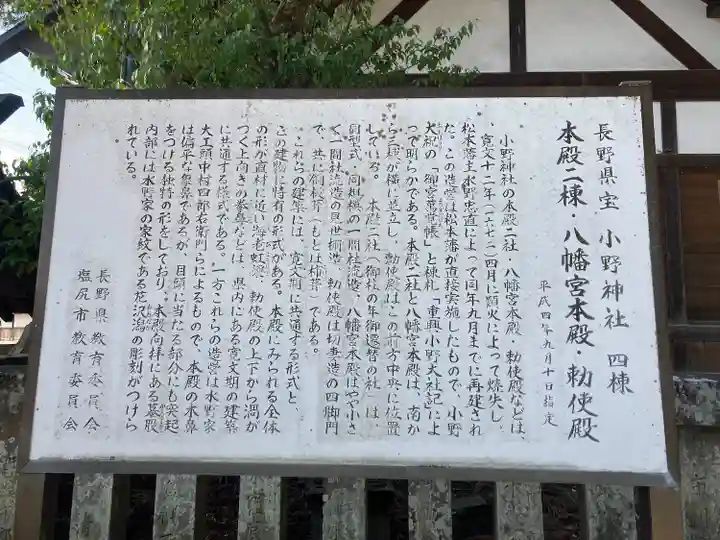 長野県宝 小野神社 四棟
本殿二棟・八幡宮本殿・勅使殿
平成四年九月十日指定
小野神社の本殿二社・八幡宮本殿・勅使殿などは、
寛文十二年(一六七二)四月に類火によって焼失し、
松本藩主水野忠直によって同年九月までに再建され
た。この造営は松本藩が直接実施したもので、小野
大祝の「御宮荒荒帳」と棟札「重興小野大社記」によ
って明らかである。本殿二社と八幡宮本殿は、南か
ら三棟が横に並立し、勅使殿はこの前方中央に位置
している。 本殿二社(御柱の年御遷替の社)は、
同型式、同規模の一間社流造、八幡宮本殿はやや小さ
く一間社流造の見世棚造、勅使殿は切妻造の四脚門
で、共に銅板葺(もとは柿葺)である。
これらの建築には、寛文期に共通する形式と、
この建物に特有の形式がある。本殿にみられる全体
の形が直材に近い海老虹梁、勅使殿の上下から渦が
つく上向きの拳鼻などは、県内にある寛文期の建築
に共通する様式である。一方これらの造営は水野家
大工頭中村四郎右衛門らによるもので、本殿の木鼻
は偏平な象鼻であるが、目頭に当たる部分にも突起
をつける独特の形をしており、本殿向拝にある蟇股
内部には水野家の家紋である花沢潟の彫刻がつけら
れている。
長野県教育委員会
塩尻市教育委員会